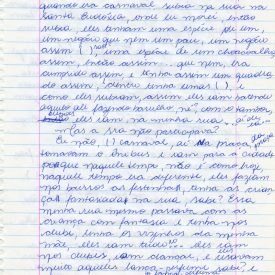 quando era carnaval subia na rua na
Santa Eudóxia, onde eu morei, então
subia eles tinham uma espécie de um
um negócio que nem um pau, um negócio
assim ( ) uma espécie de um chocalho
assim, então assim... que nem, era
comprido assim, e tinha assim um quadra
do assim, dentro tinha umas ( ), e
como eles subiam, assim eles iam batendo
aquilo ali fazendo barulho né, como se fosse
eles iam na minha rua
mas a sra não participava?
Eu não, ( ) carnaval, ai na praça,
tomavam o ônibus e iam para a cidade
porque naquele tempo não é como hoje,
naquele tempo era diferente, eles faziam
nos bairros as festinhas, tinha as crian
ças fantasiadas na rua, sabe? Essa
minha rua mesmo passava com as
crianças com fantasias, tinha nos
clube, tinha os vizinhos da minha
mãe, eles iam eles iam
nos clubes, iam dançar, e usavam
muito aqueles lança-perfume sabe, e